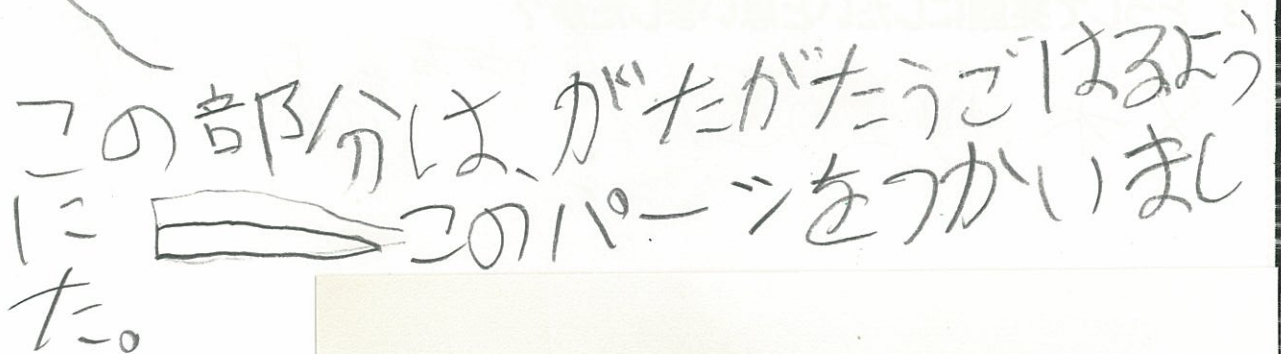 この部分は、がたがたうごはるよう
に このパーツをつかいまし
た。